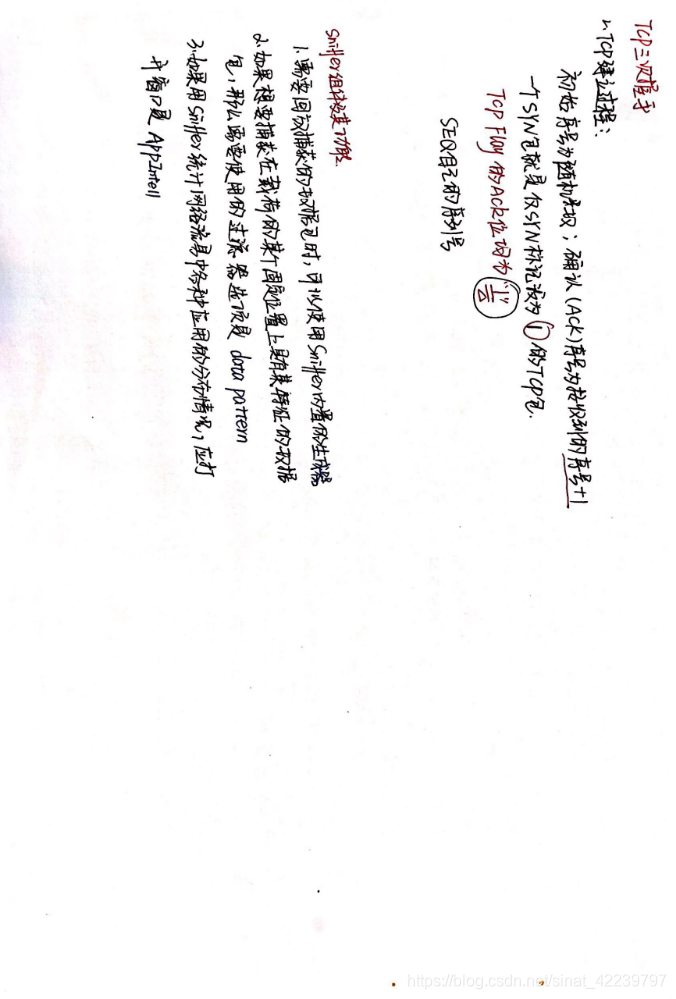 TCP三次握手
1. TCP建立过程：
初始序号为随机获取；确认(ACK)序号为接收到的序号+1
一个SYN包就是仅SYN标记设为①的TCP包.
TCP Flag的Ack位均为"1"
SEQ自己的序列号
Sniffer组件及其功能
1.需要回放捕获的数据包时，可以使用Sniffer内置的生成器
2.如果想要捕获在载荷的某个固定位置上具有某特征的数据
包，那么需要使用的过滤器选项是 data pattern
3.如果用Sniffer统计网络流量中各种应用的分布情况，应打
开窗口是 AppIntell
https://blog.csdn.net/sinat_42239797